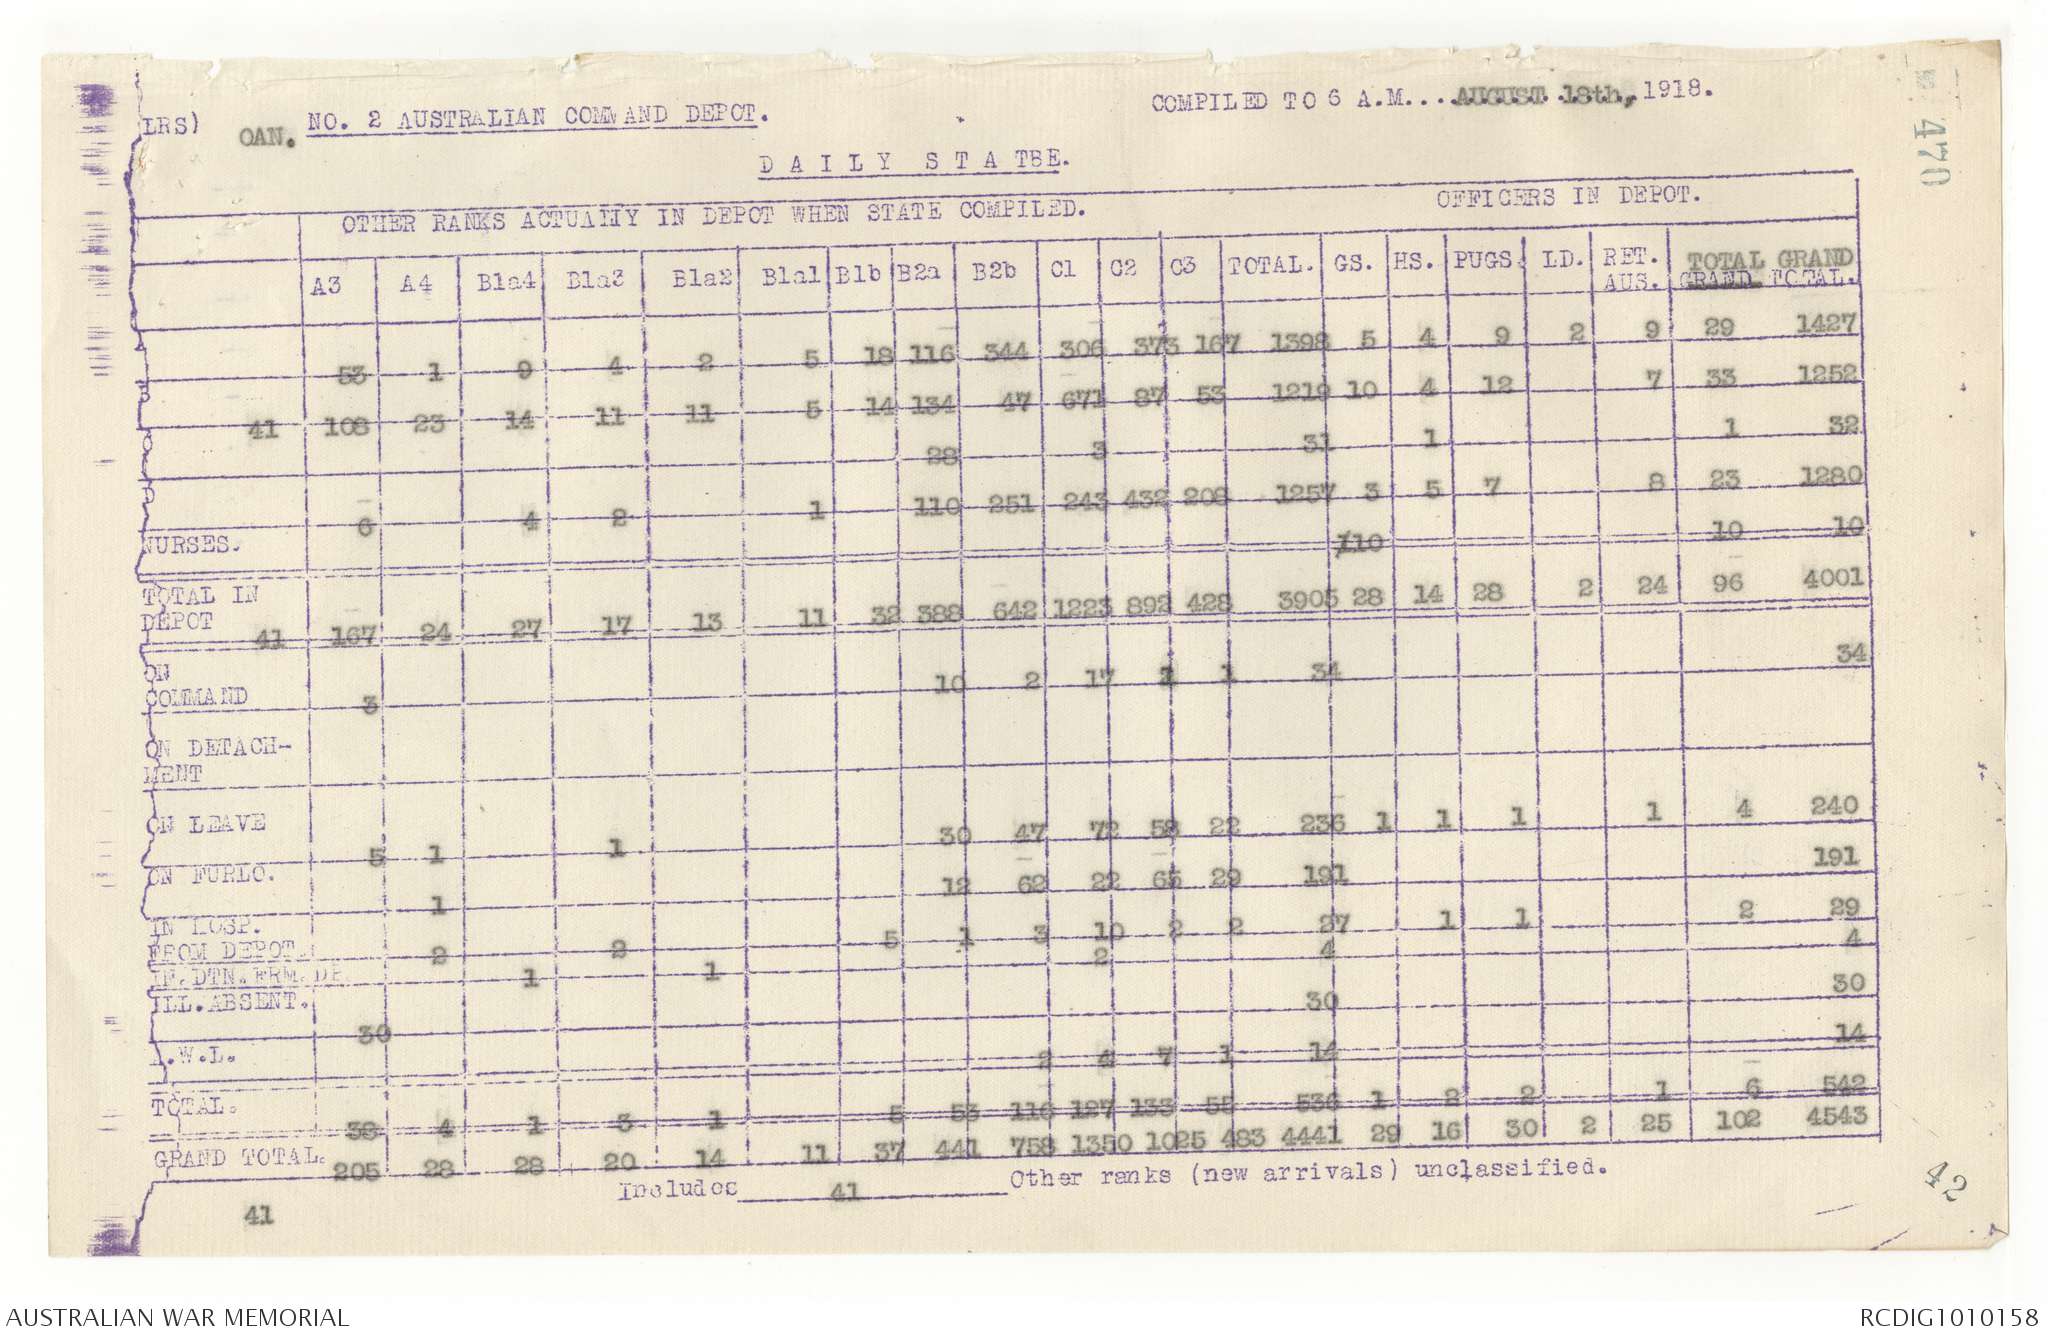 LRS) OAN. NO. 2 AUSTRALIAN COMMAND DEPOT. COMPILED TO 6 A.M.... AUGUST 18th, 1918.
470
DAILY STATBE.
OTHER RANKS ACTUALLY IN DEPOT WHEN STATE COMPILED. OFFICERS IN DEPOT.
A3 A4 B1a4 B1a3 B1a2 B1a1 B1b B2a B2b C1 C2 C3 TOTAL. GS. HS. PUGS. LD. RET. AUS. TOTAL GRAND
GRAND TOTAL.
53 1 9 4 2 5 18 116 344 306 373 167 1398 5 4 9 2 9 29 1427
B 41 108 23 14 11 11 5 14 134 47 671 87 53 1219 10 4 12 7 33 1252
C 28 3 31 1 1 32
D 6 4 2 1 110 251 243 432 208 1257 3 5 7 8 23 1280
NURSES. 10 10 10
TOTAL IN
DEPOT 41 167 24 27 17 13 11 32 388 642 1223 892 428 3905 28 14 28 2 24 96 4001
ON
COMMAND 3 10 2 17 1 1 34 34
ON DETACH-
MENT
ON LEAVE 5 1 1 30 47 72 58 22 236 1 1 1 1 4 240
ON FURLO. 1 12 62 22 65 29 191 191
IN HOSP.
FROM DEPOT. 2 2 5 1 3 10 2 2 27 1 1 2 29
IF. DTN. FRM. DP. 1 1 2 4 4
ILL. ABSENT. 30 30 30
A.W.L. 2 4 7 1 14 14
TOTAL. 38 4 1 3 1 5 53 116 127 133 55 536 1 2 2 1 6 542
GRAND TOTAL. 205 28 28 20 14 11 37 441 758 1350 1025 483 4441 29 16 30 2 25 102 4543
41
Includes 41 Other ranks (new arrivals) unclassified.
42
AUSTRALIAN WAR MEMORIAL RCDIG1010158